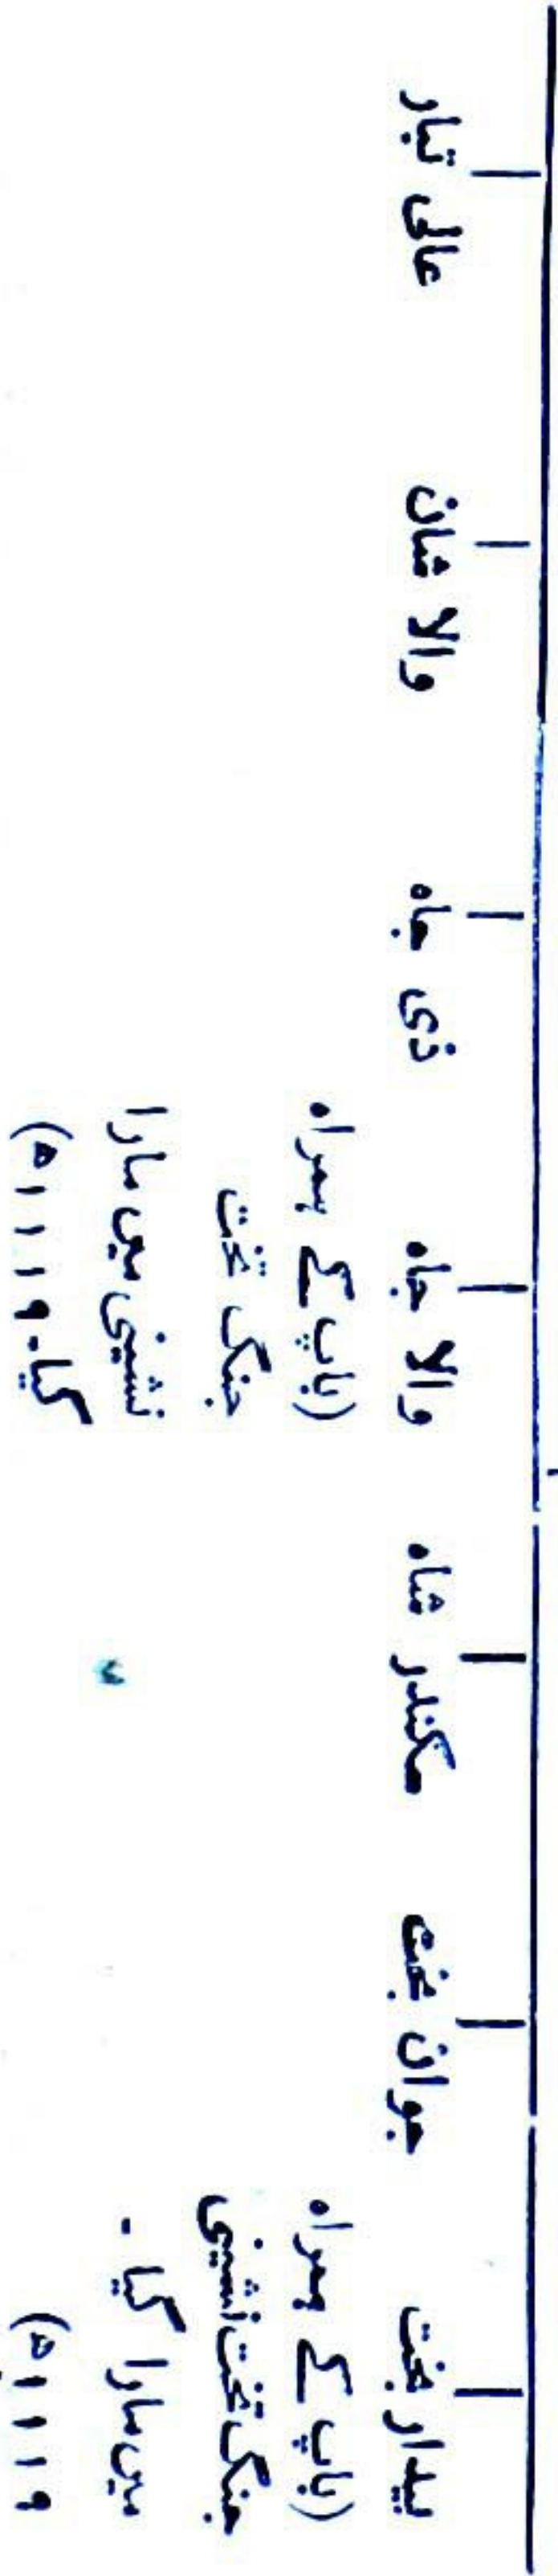 بیدار بخت
(باپ کے ہمراہ
جنگ تخت نشینی
میں مارا گیا ۔
۱۱۱۹ھ)
جوان بخت
سکندر شاہ
والا جاہ
(باپ کے ہمراہ
جنگ تخت
نشینی میں مارا
گیا۔ ۱۱۱۹ھ)
ذی جاہ
والا شان
عالی تبار